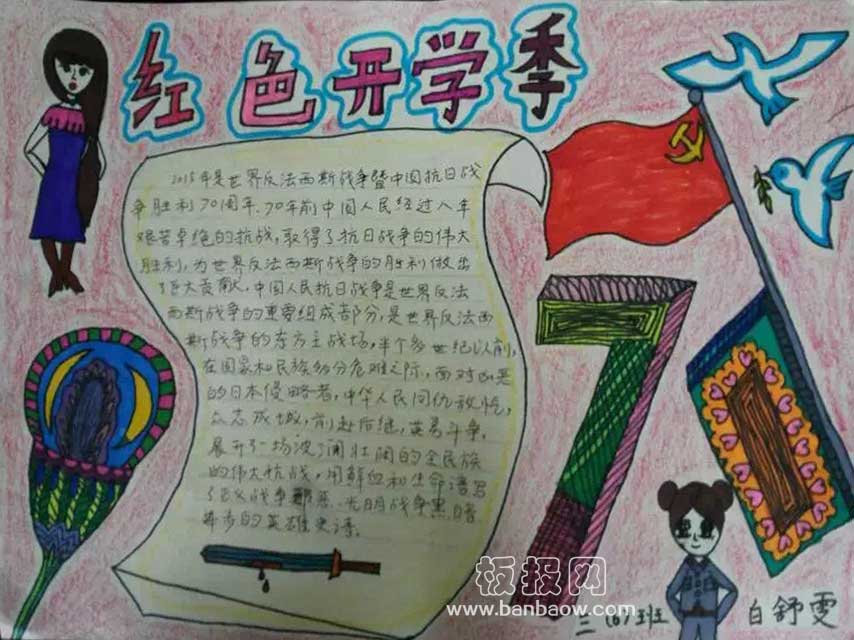 红色开学季
2015年是世界反法西斯战争暨中国抗日战
争胜利70周年.70年前中国人民经过八年
艰苦卓绝的抗战,取得了抗日战争的伟大
胜利,为世界反法西斯战争的胜利做出
了巨大贡献,中国人民抗日战争是世界反法
西斯战争的重要组成部分,是世界反法西
斯战争的东方主战场,半个多世纪以前,
在国家和民族多分危难之际,面对凶恶
的日本侵略者,中华人民同仇敌忾,
众志成城,前赴后继,英勇斗争,
展开了一场波了阔壮阔的全民族
的伟大抗战,用鲜血和生命谱写
了正义战争 光明战争黑暗
的英雄史诗.
7
三(6)班 白舒雯
板报网
www.banbaow.com